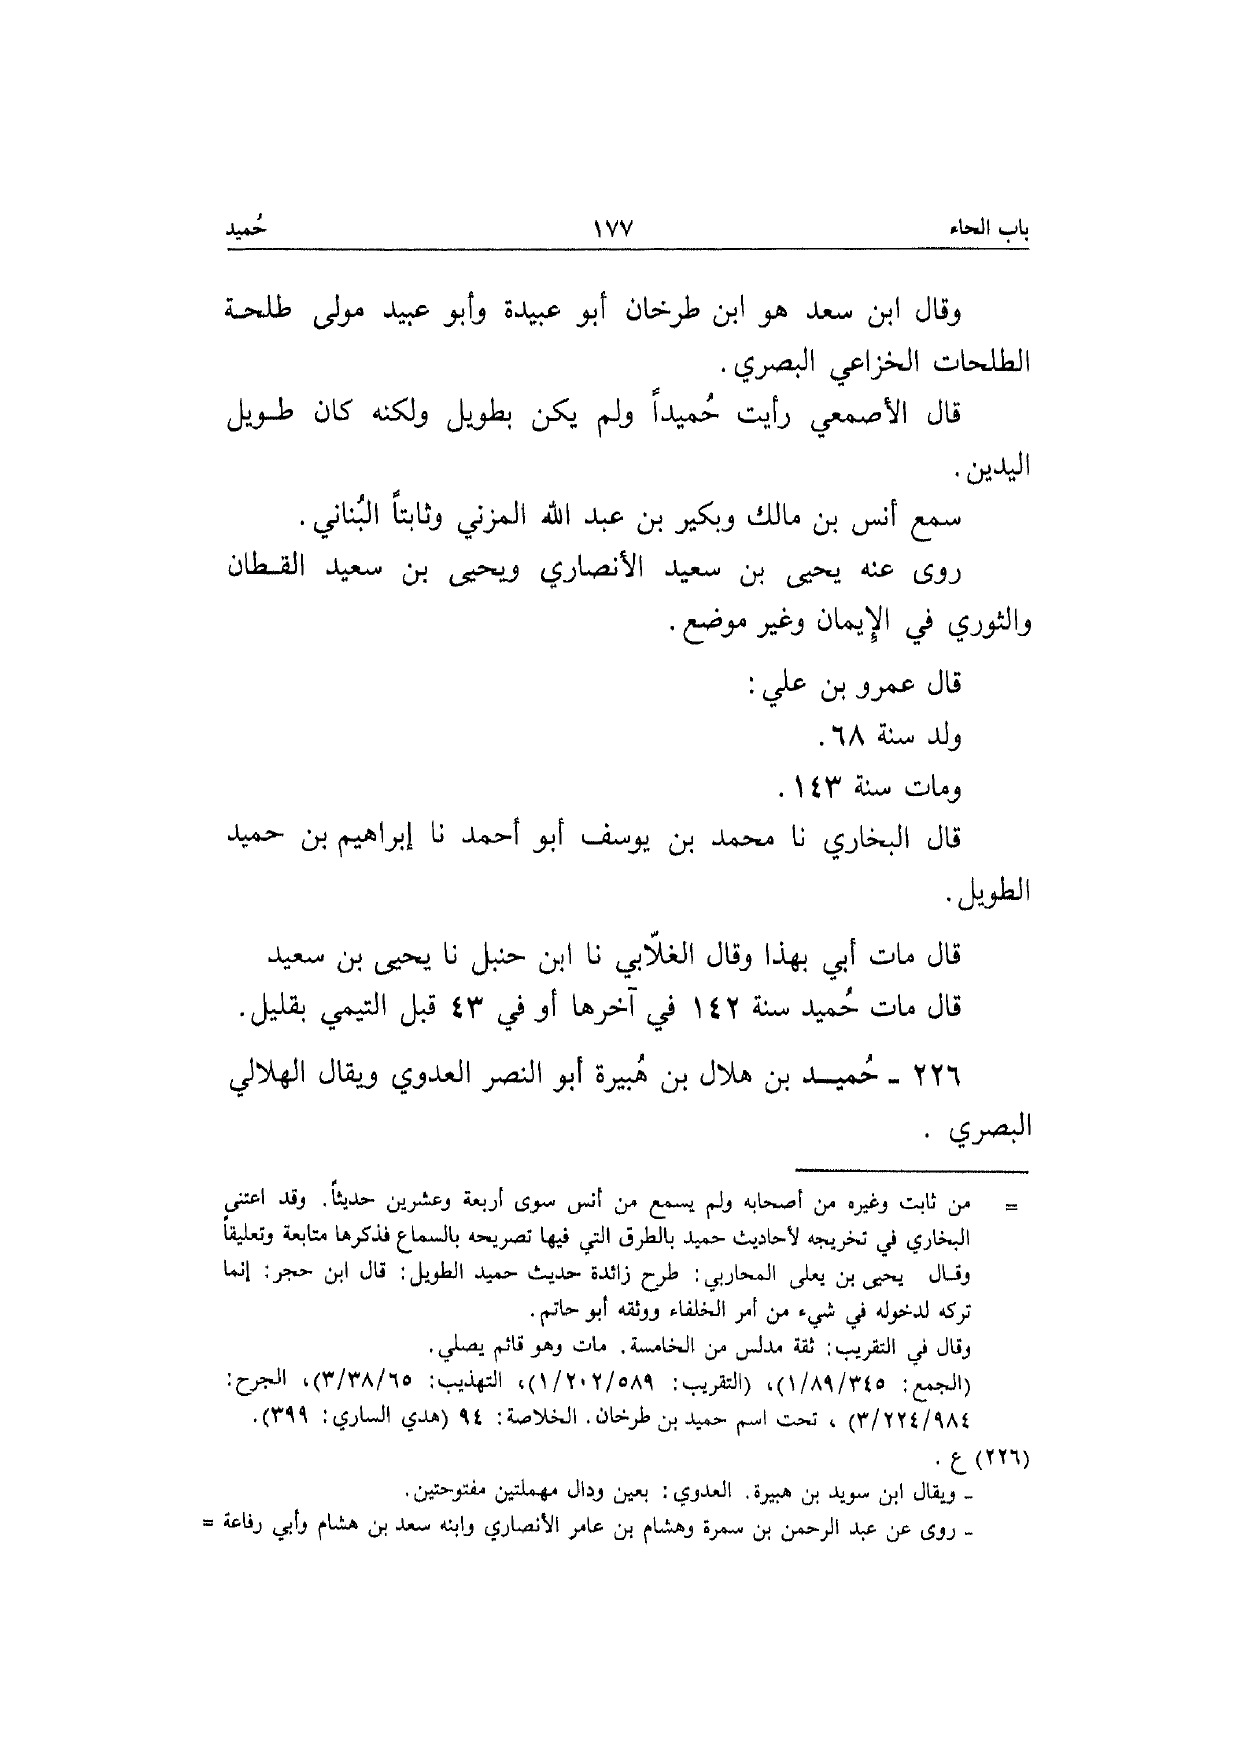 باب الحاء ١٧٧ حُميد
وقال ابن سعد هو ابن طرخان أبو عبيدة وأبو عبيد مولى طلحة
الطلحات الخزاعي البصري .
قال الأصمعي رأيت حُميداً ولم يكن بطويل ولكنه كان طويل
اليدين .
سمع أنس بن مالك وبكير بن عبد الله المزني وثابتاً البُناني .
روى عنه يحيى بن سعيد الأنصاري ويحيى بن سعيد القطان
والثوري في الإيمان وغير موضع .
قال عمرو بن علي :
ولد سنة ٦٨ .
ومات سنة ١٤٣ .
قال البخاري نا محمد بن يوسف أبو أحمد نا إبراهيم بن حميد
الطويل .
قال مات أبي بهذا وقال الغلّابي نا ابن حنبل نا يحيى بن سعيد
قال مات حُميد سنة ١٤٢ في آخرها أو في ٤٣ قبل التيمي بقليل .
٢٢٦ ـ حُميد بن هلال بن هُبيرة أبو النصر العدوي ويقال الهلالي
البصري .
= من ثابت وغيره من أصحابه ولم يسمع من أنس سوى أربعة وعشرين حديثاً. وقد اعتنى
البخاري في تخريجه لأحاديث حميد بالطرق التي فيها تصريحه بالسماع فذكرها متابعة وتعليقاً
وقال يحيى بن يعلى المحاربي: طرح زائدة حديث حميد الطويل: قال ابن حجر: إنما
تركه لدخوله في شيء من أمر الخلفاء ووثقه أبو حاتم.
وقال في التقريب: ثقة مدلس من الخامسة. مات وهو قائم يصلي.
(الجمع: ١/٨٩/٣٤٥)، (التقريب: ١/٢٠٢/٥٨٩)، التهذيب: ٣/٣٨/٦٥)، الجرح:
٣/٢٢٤/٩٨٤) ، تحت اسم حميد بن طرخان. الخلاصة: ٩٤ (هدي الساري: ٣٩٩).
(٢٢٦) ع .
ـ ويقال ابن سويد بن هبيرة. العدوي: بعين ودال مهملتين مفتوحتين.
ـ روى عن عبد الرحمن بن سمرة وهشام بن عامر الأنصاري وابنه سعد بن هشام وأبي رفاعة =